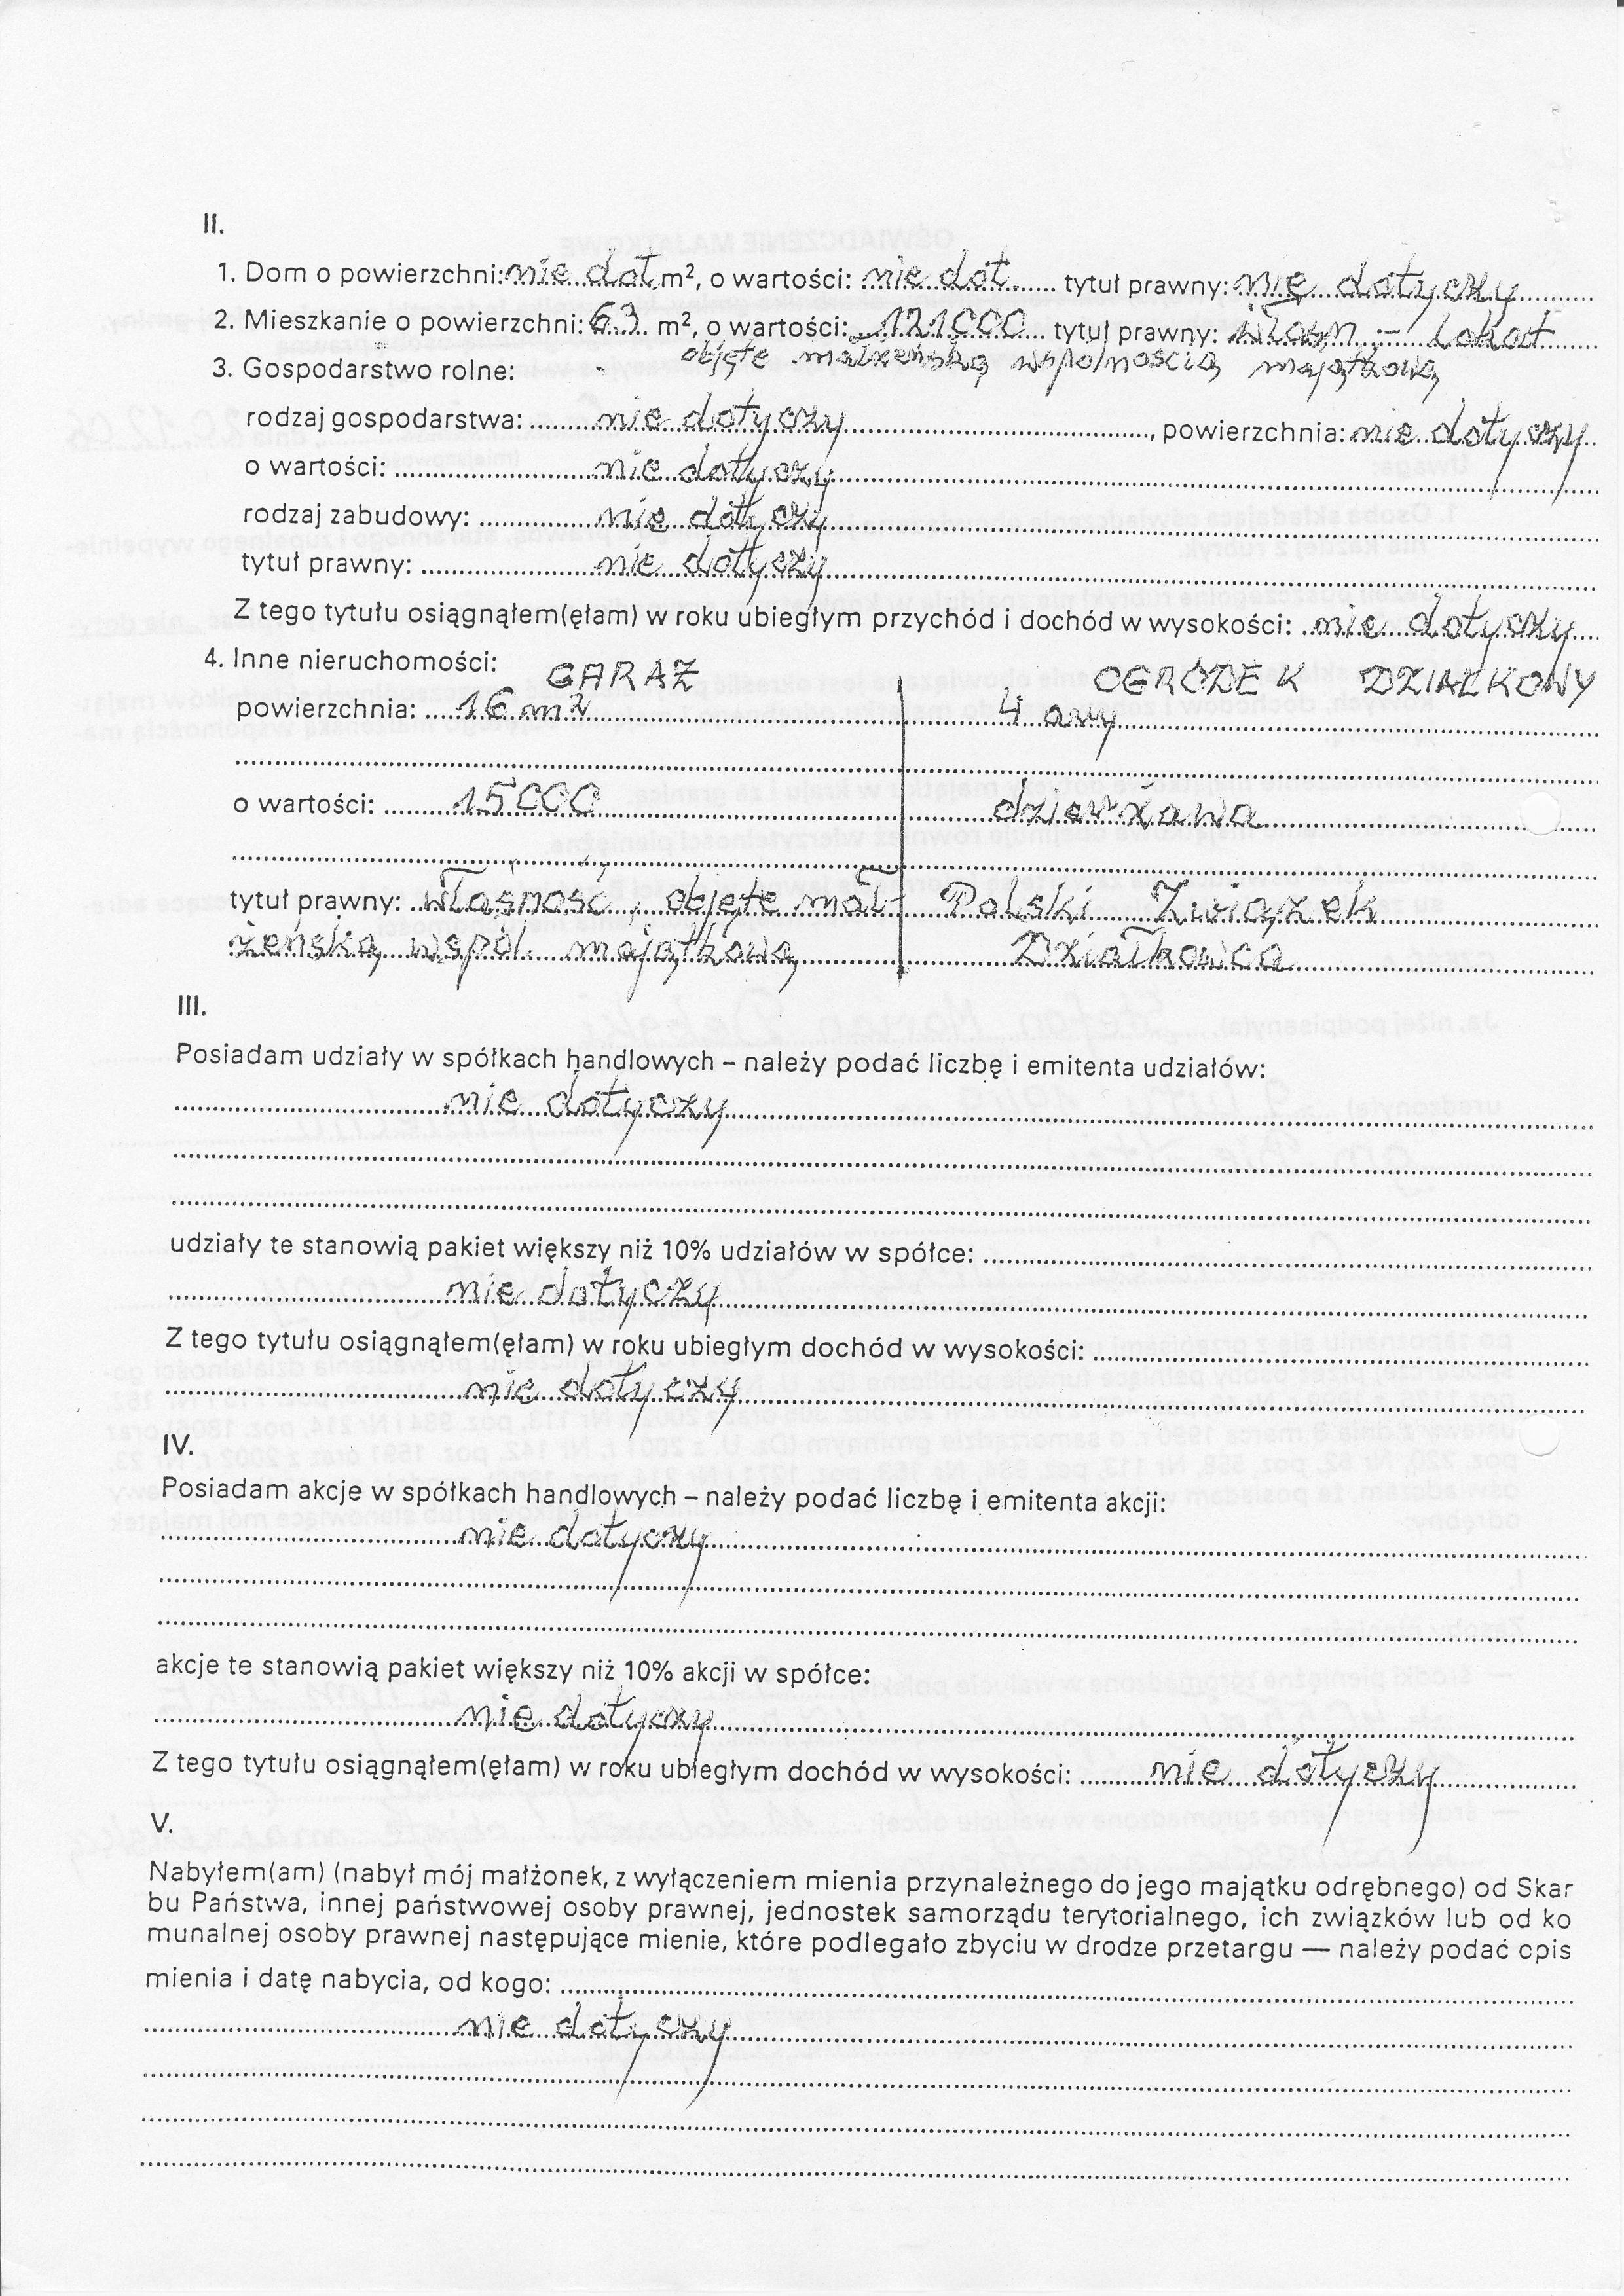 II.
1. Dom o powierzchni: nie dot. m², o wartości: nie dot. tytuł prawny: nie dotyczy
2. Mieszkanie o powierzchni: 63 m², o wartości: 121000 tytuł prawny: własn - lokat
objęte małżeńską wspólnością majątkową
3. Gospodarstwo rolne:
rodzaj gospodarstwa: nie dotyczy, powierzchnia: nie dotyczy
o wartości: nie dotyczy
rodzaj zabudowy: nie dotyczy
tytuł prawny: nie dotyczy
Z tego tytułu osiągnąłem(ęłam) w roku ubiegłym przychód i dochód w wysokości: nie dotyczy
4. Inne nieruchomości: GARAŻ OGRÓDEK DZIAŁKOWY
powierzchnia: 16 m2 4 ary
o wartości: 15000 dzierżawa
tytuł prawny: własność, objęte mał- Polski Związek
żeńską wspól. majątkową Działkowca
III.
Posiadam udziały w spółkach handlowych – należy podać liczbę i emitenta udziałów:
nie dotyczy
udziały te stanowią pakiet większy niż 10% udziałów w spółce:
nie dotyczy
Z tego tytułu osiągnąłem(ęłam) w roku ubiegłym dochód w wysokości:
nie dotyczy
IV.
Posiadam akcje w spółkach handlowych – należy podać liczbę i emitenta akcji:
nie dotyczy
akcje te stanowią pakiet większy niż 10% akcji w spółce:
nie dotyczy
Z tego tytułu osiągnąłem(ęłam) w roku ubiegłym dochód w wysokości: nie dotyczy
V.
Nabyłem(am) (nabył mój małżonek, z wyłączeniem mienia przynależnego do jego majątku odrębnego) od Skar
bu Państwa, innej państwowej osoby prawnej, jednostek samorządu terytorialnego, ich związków lub od ko
munalnej osoby prawnej następujące mienie, które podlegało zbyciu w drodze przetargu — należy podać opis
mienia i datę nabycia, od kogo:
nie dotyczy